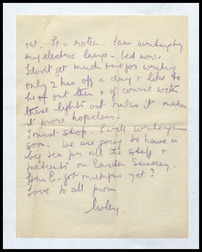 out. It is rotten. I am writing by
my electric lamp – bed now.
I don't get much time for writing
only 2 hrs off a day & I like to
be out then & of course with
these lights out rules it makes
it more hopeless.
I must stop. I will write again
soon. We are going to have a
big tea for all the staff &
patients on Easter Sunday.
Has E. got mumps yet?
Love to all from